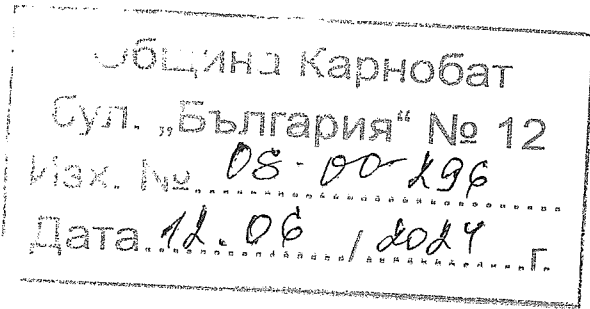 Община Карнобат
бул. „България“ № 12
Изх. № 08-00-296
Дата 12.06 / 2024 г.